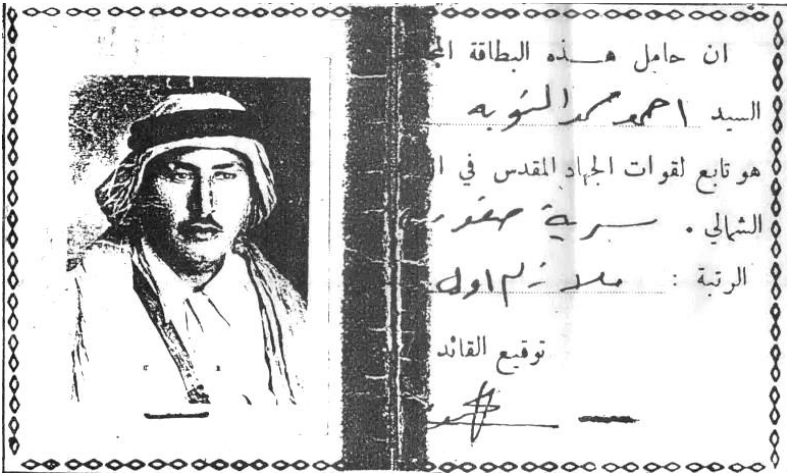 ان حامل هـــذه البطاقة
السيد احمد محمد التوبه
هو تابع لقوات الجهاد المقدس في
الشمالي . سرية صفور
الرتبة : ملازم اول
توقيع القائد